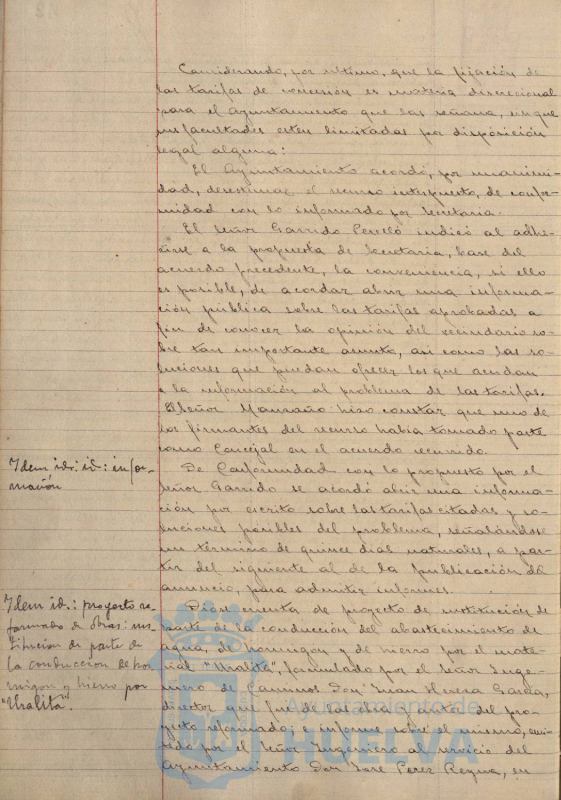 Considerando, por último, que la fijación de
las tarifas de concesión es materia discrecional
para el Ayuntamiento que las señana, sin que
sus facultades estén limitadas por disposición
legal alguna:
El Ayuntamiento acordó, por unanimi-
dad, desestimar el recurso interpuesto, de confor-
midad con lo informado por Secretaria.
El Señor Garrido Perelló indicó al adhe-
rirse a la propuesta de Secretaria, base del
acuerdo precedente, la conveniencia, si ello
es posible, de acordar abrir una informa-
ción pública sobre las tarifas aprobadas a
fin de conocer la opinión del vecindario so-
bre tan importante asunto, asi como las so-
luciones que puedan ofrecer los que acudan
a la información al problema de las tarifas.
El Señor Manzano hizo constar que uno de
los firmantes del recurso habia tomado parte
como Concejal en el acuerdo recurrido.
Idem id: id: infor-
mación
De Conformidad con lo propuesto por el
Señor Garrido se acordó abrir una informa-
ción por escrito sobre las tarifas citadas y so-
luciones posibles del problema, señalándose
un término de quince dias naturales, a par-
tir del siguiente al de la publicación del
anuncio, para admitir informes.
Idem id.: proyecto re-
formado de obras: sus-
titucion de parte de
la conduccion de hor-
migon y hierro por
"Uralita".
Dióse cuenta de proyecto de sustitución de
parte de la conducción del abastecimiento de
agua, de hormigon y de hierro por el mate-
rial "Uralita", formulado por el Señor Inge-
niero de Caminos Don Juan Herera Garcia,
director que fué de las obras y autor del pro-
yecto reformado; e informe sobre el mismo, emi-
tido por el Señor Ingeniero al servicio del
Ayuntamiento Don José Perez Reyna, en
Ayuntamiento de
HUELVA